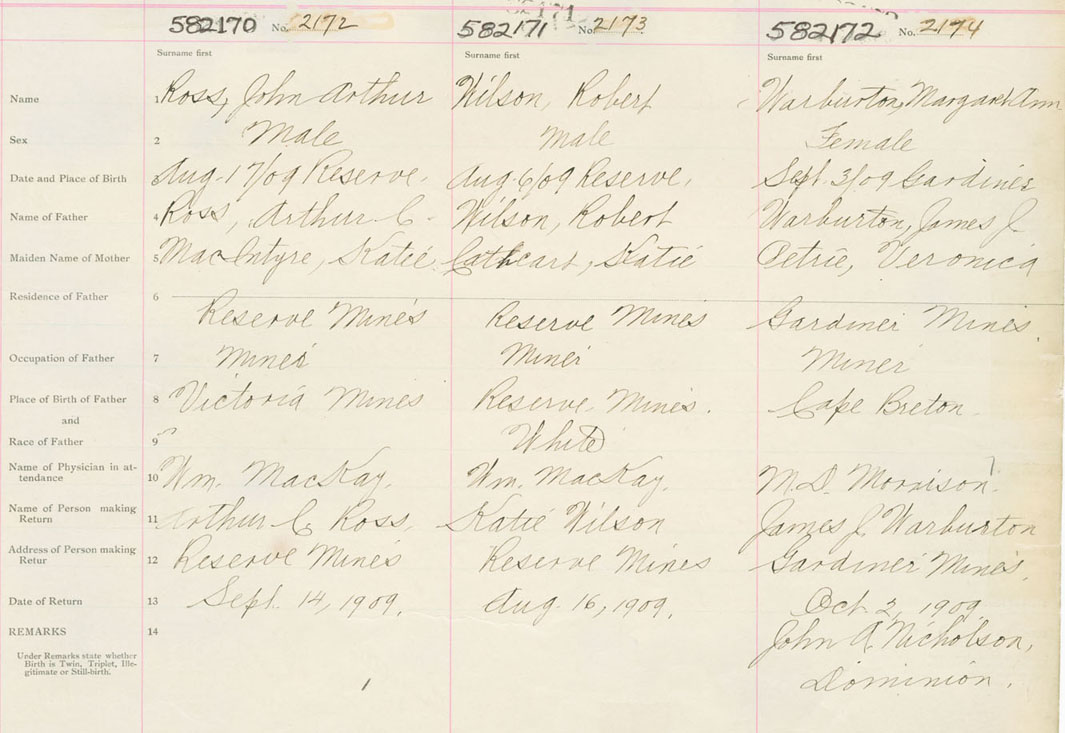 582170 No. 2172 582171 No. 2173 582172 No. 2174
Surname first Surname first Surname first
Name 1 Ross, John Arthur Wilson, Robert Warburton, Margaret Ann
Sex 2 Male Male Female
Date and Place of Birth Aug. 17/09 Reserve. Aug. 6/09 Reserve. Sept. 3/09 Gardiner
Name of Father 4 Ross, Arthur C. Wilson, Robert Warburton, James J
Maiden Name of Mother 5 MacIntyre, Katie Cathcart, Katie Petrie, Veronica
Residence of Father 6
Reserve Mines Reserve Mines Gardiner Mines.
Occupation of Father 7 Miner Miner Miner
Place of Birth of Father 8 Victoria Mines Reserve Mines. Cape Breton
and
Race of Father 9 " White
Name of Physician in at-
tendance 10 Wm. MacKay. Wm. MacKay. M.D. Morrison.
Name of Person making
Return 11 Arthur C. Ross. Katie Wilson James J. Warburton
Address of Person making
Retur 12 Reserve Mines Reserve Mines Gardiner Mines.
Date of Return 13 Sept. 14, 1909. Aug. 16, 1909. Oct. 2, 1909
REMARKS 14 John A. Nicholson,
Under Remarks state whether
Birth is Twin, Triplet, Ille-
gitimate or Still-birth.
Dominion.